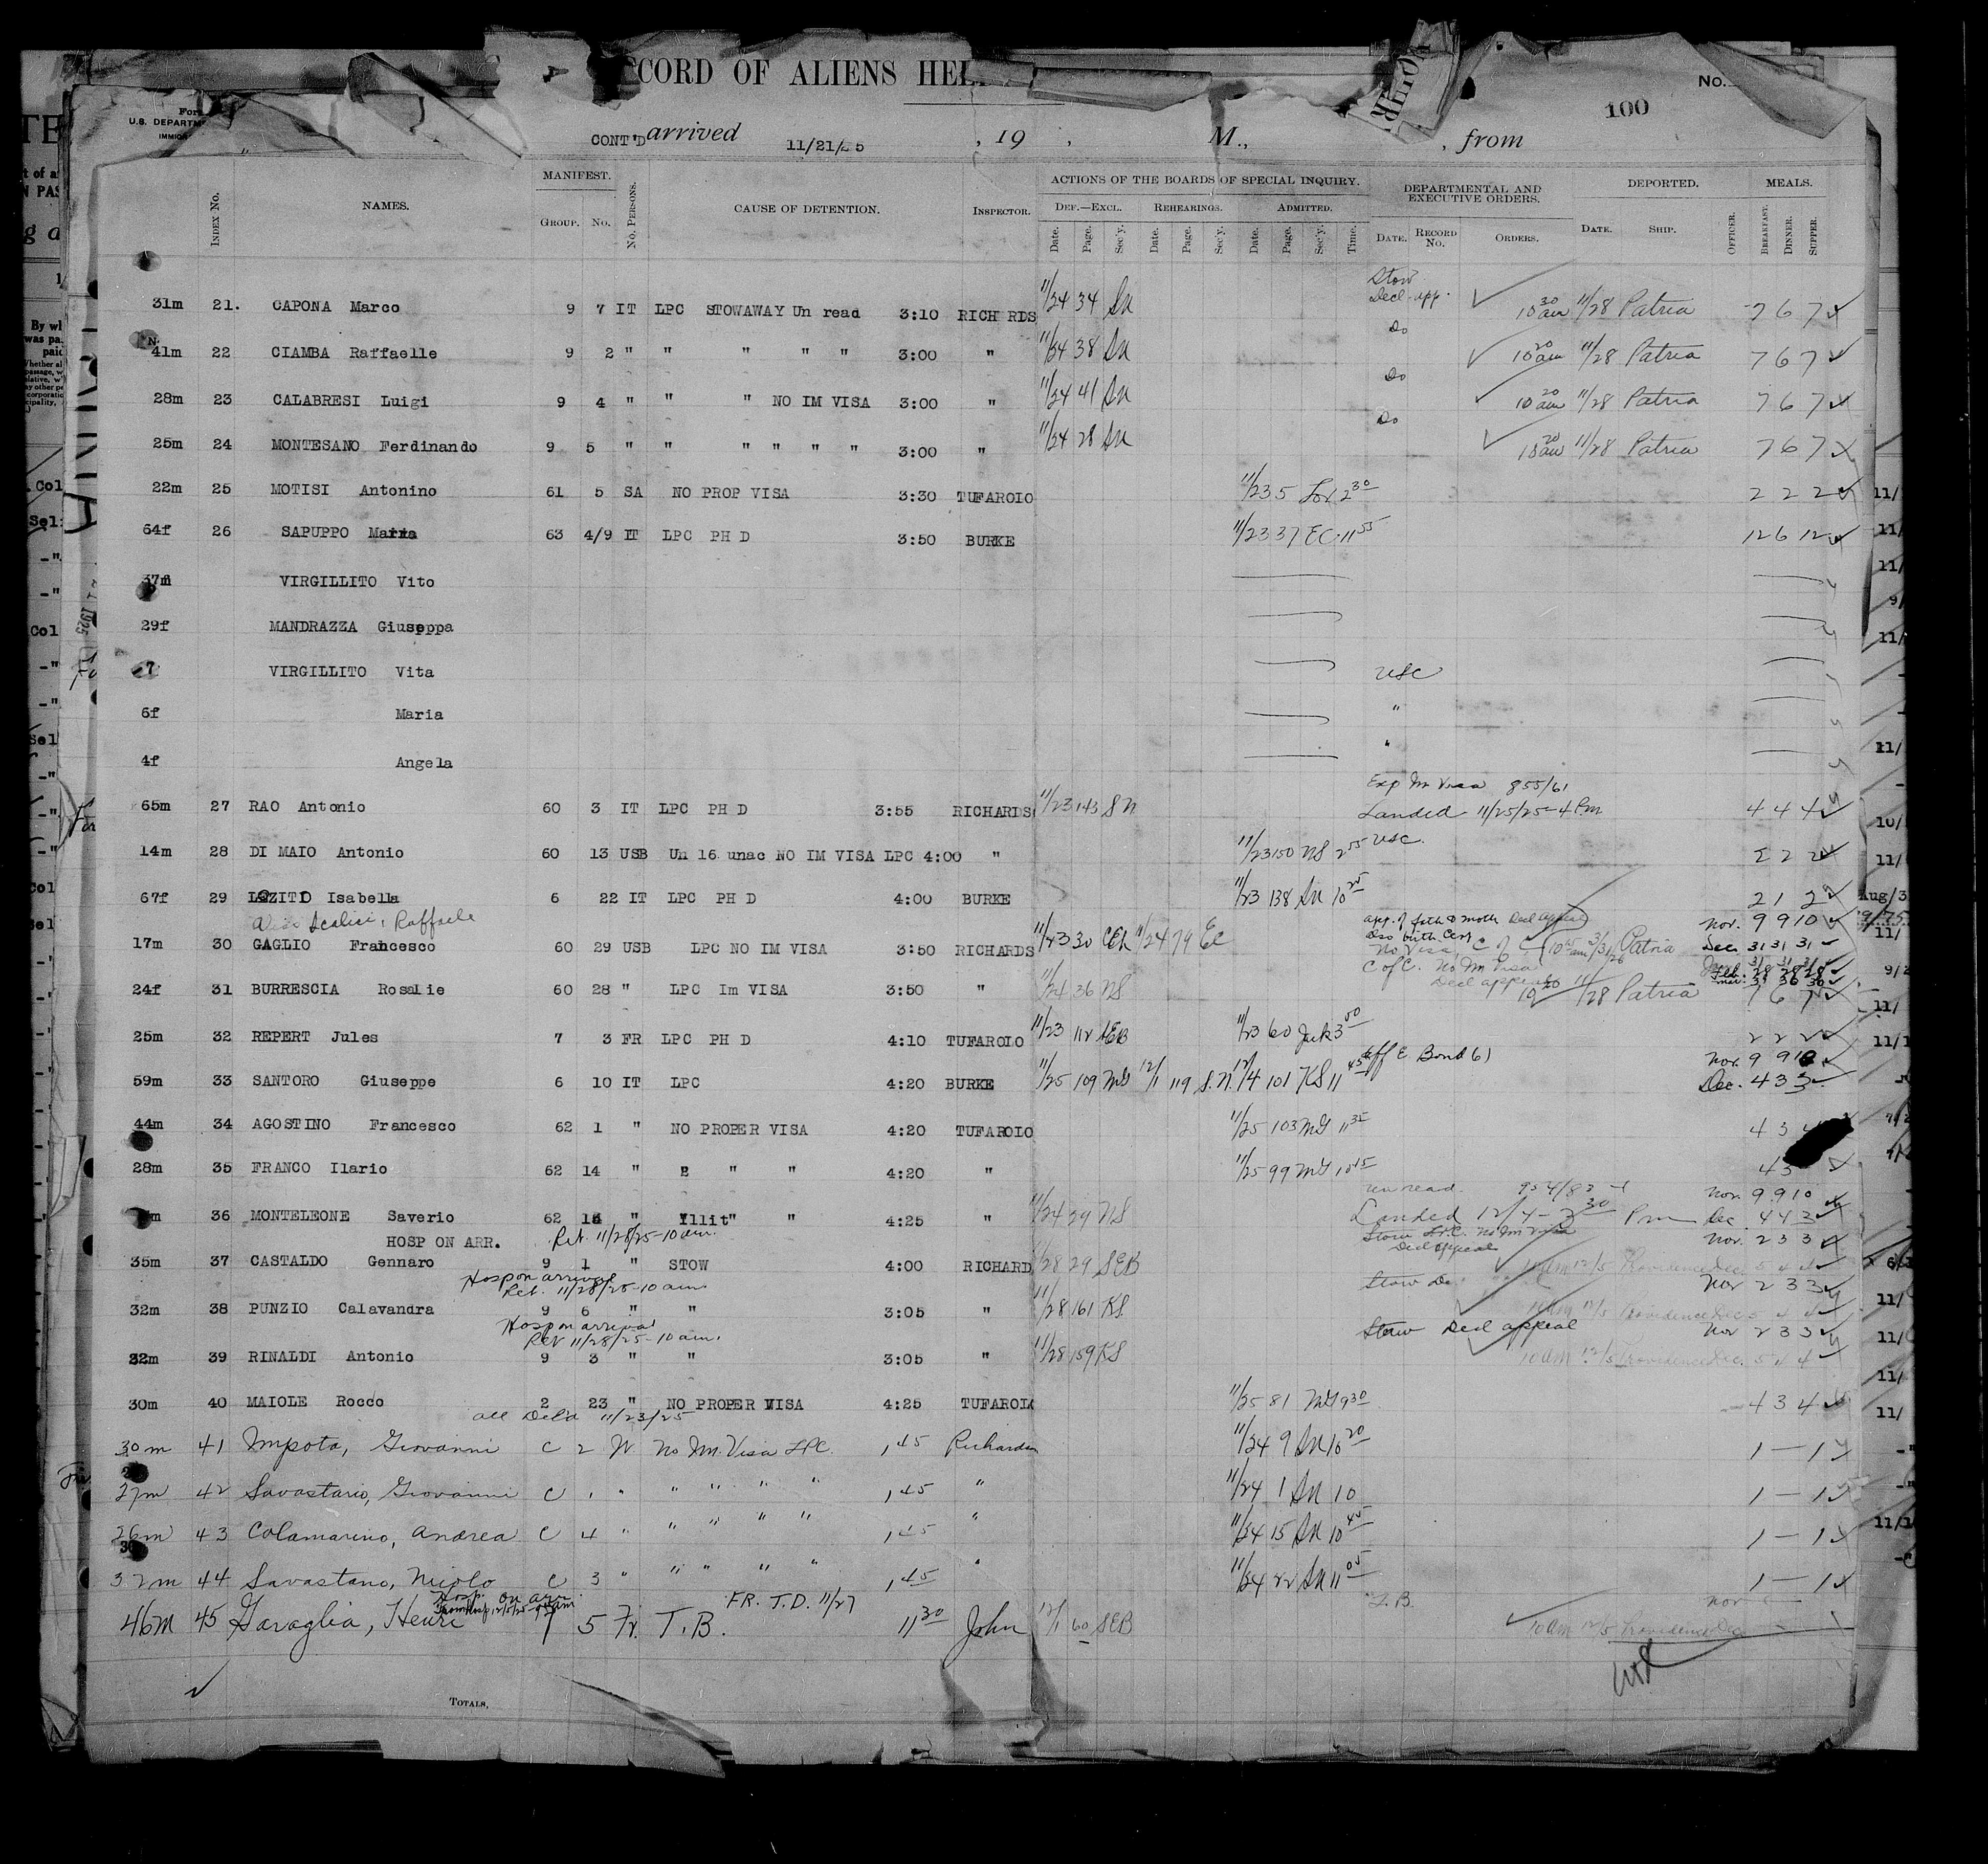 CORD OF ALIENS HEL
No.
100
U.S. DEPARTM
CONT'D arrived 11/21/25 , 19 , M., , from
INDEX No. NAMES. MANIFEST. GROUP. No. No. PERSONS. CAUSE OF DETENTION. INSPECTOR. ACTIONS OF THE BOARDS OF SPECIAL INQUIRY. DEPARTMENTAL AND EXECUTIVE ORDERS. DEPORTED. MEALS.
DEF.—EXCL. REHEARINGS. ADMITTED.
Date. Page. Sec'y. Date. Page. Sec'y. Date. Page. Sec'y. Time. DATE. RECORD No. ORDERS. DATE. SHIP. OFFICER. BREAKFAST. DINNER. SUPPER.
Stow
Decl-app.
31m 21. CAPONA Marco 9 7 IT LPC STOWAWAY Un read 3:10 RICH RDS 11/24 34 SN 10 30 am 11/28 Patria 7 6 7
Do
41m 22 CIAMBA Raffaelle 9 2 " " " " " 3:00 " 11/24 38 SN 10 20 am 11/28 Patria 7 6 7
Do
28m 23 CALABRESI Luigi 9 4 " " " NO IM VISA 3:00 " 11/24 41 SN 10 20 am 11/28 Patria 7 6 7
Do
25m 24 MONTESANO Ferdinando 9 5 " " " " " " 3:00 " 11/24 28 SN 10 20 am 11/28 Patria 7 6 7
22m 25 MOTISI Antonino 61 5 SA NO PROP VISA 3:30 TUFAROIO 11/23 5 2 30 2 2 2
64f 26 SAPUPPO Maria 63 4/9 IT LPC PH D 3:50 BURKE 11/23 37 EC 11 55 12 6 12
37m VIRGILLITO Vito
29f MANDRAZZA Giuseppa
7 VIRGILLITO Vita USC
6f Maria "
4f Angela "
Exp Im Visa 855/61
65m 27 RAO Antonio 60 3 IT LPC PH D 3:55 RICHARDS 11/23 143 SN Landed 11/25/25-4 Pm 4 4 4
14m 28 DI MAIO Antonio 60 13 USB Un 16 unac NO IM VISA LPC 4:00 " 11/23 150 NS 2 55 USC. 2 2 2
67f 29 LOZITO Isabella 6 22 IT LPC PH D 4:00 BURKE 11/23 138 SN 10 25 2 1 2
alias Scalici, Raffaele app. of fath & moth Decl appeal Nov. 9 9 10
17m 30 GAGLIO Francesco 60 29 USB LPC NO IM VISA 3:50 RICHARDS 11/23 30 11/24 79 EC No Visa, C of C Patria Dec. 31 31 31
C of C. No Im Visa
Decl appeal
24f 31 BURRESCIA Rosalie 60 28 " LPC Im VISA 3:50 " 11/24 36 NS 10 20 11/28 Patria 7 6 7
25m 32 REPERT Jules 7 3 FR LPC PH D 4:10 TUFAROIO 11/23 112 SEB 11/23 60 3 00 2 2 2
Bond Nov. 9 9 10
59m 33 SANTORO Giuseppe 6 10 IT LPC 4:20 BURKE 11/25 109 MG 12/1 119 S.N. 12/4 101 KS 11 45 Dec. 4 3 3
44m 34 AGOSTINO Francesco 62 1 " NO PROPER VISA 4:20 TUFAROIO 11/25 103 MG 11 35 4 3
28m 35 FRANCO Ilario 62 14 " " " 4:20 " 11/25 99 MG 10 15 4 3
un read. 954/83 Nov. 9 9 10
36 MONTELEONE Saverio 62 " Illit" " 4:25 " 11/24 29 NS Landed 12/4-3 30 Pm Dec 4 4 3
HOSP ON ARR. Ret. 11/28/25-10 am. Stow LPC. No Im Visa Nov. 2 3 3
Decl appeal
35m 37 CASTALDO Gennaro 9 1 " STOW 4:00 RICHARD 11/28 29 SEB 10am 12/5 Providence Dec. 5 4 4
Hosp on arrival
Ret. 11/28/25-10 am Stow Nov 2 3 3
32m 38 PUNZIO Calavandra 9 6 " " 3:05 " 11/28 161 KS 10am 12/5 Providence Dec 5 4 4
Hosp on arrival
Ret 11/28/25-10 am. Stow Decl appeal Nov 2 3 3
32m 39 RINALDI Antonio 9 3 " " 3:05 " 11/28 159 KS 10 am 12/5 Providence Dec. 5 4 4
30m 40 MAIOLE Rocco 2 23 " NO PROPER VISA 4:25 TUFAROLO 11/25 81 MG 9 30 4 3 4
all Del'd 11/23/25
30 m 41 Impota, Giovanni C 2 No Im. Visa LPC. 1 45 Richards 11/24 9 SN 10 20 1 — 1
27m 42 Savastano, Giovanni C 1 " " " " " 1 45 " 11/24 1 SN 10 1 — 1
26m 43 Colamarino, Andrea C 4 " " " " " 1 45 " 11/24 15 SN 10 45 1 — 1
32m 44 Savastano, Nicolo C 3 " " " " " 1 45 " 11/24 22 SN 11 05 1 — 1
Hosp. on arr. FR. T.D. 11/27 T.B. Nov
46m 45 Garaglia, Henri 7 5 Fr. T.B. 11 30 John 12/1 60 SEB 10 am 12/5 Providence Dec
TOTALS,